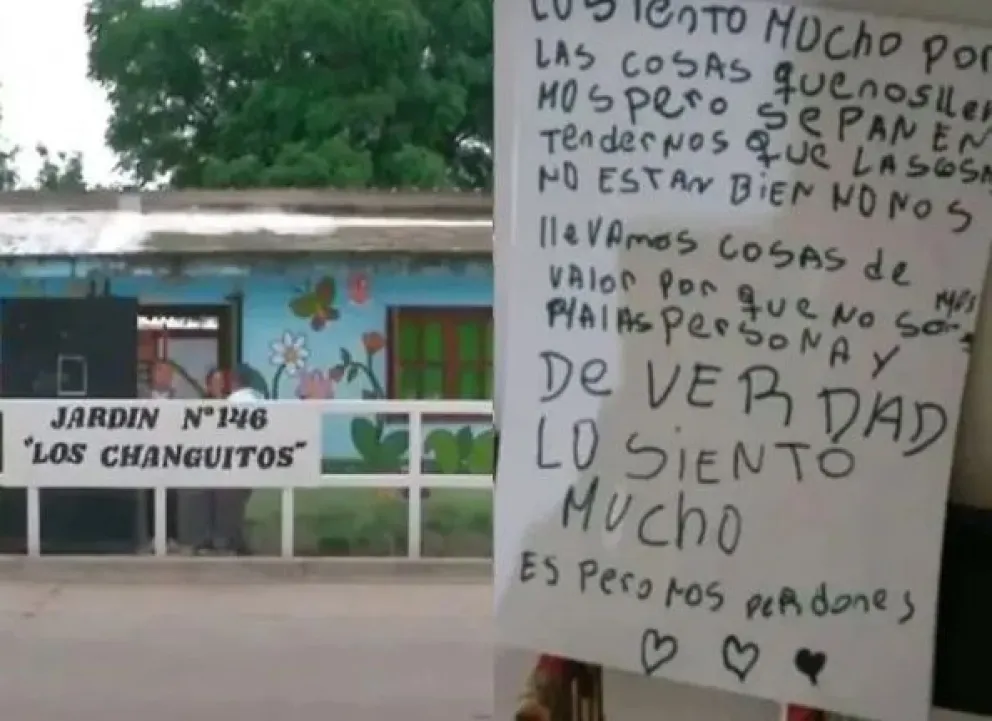 JARDIN N°146
"LOS CHANGUITOS"
LO SIENTO MUCHO POR
LAS COSAS QUE NOS lleV
MOS PerO SEPAN EN
TenderNOS QUE LAS COSA
NO ESTAN BiEN NO NOS
lleVAmos COSAS de
VALOR POR QUE NO SOmos
MALAS PersoNA Y
De VERDAD
LO SiENTO
MUchO
ES PerO NOS perdones